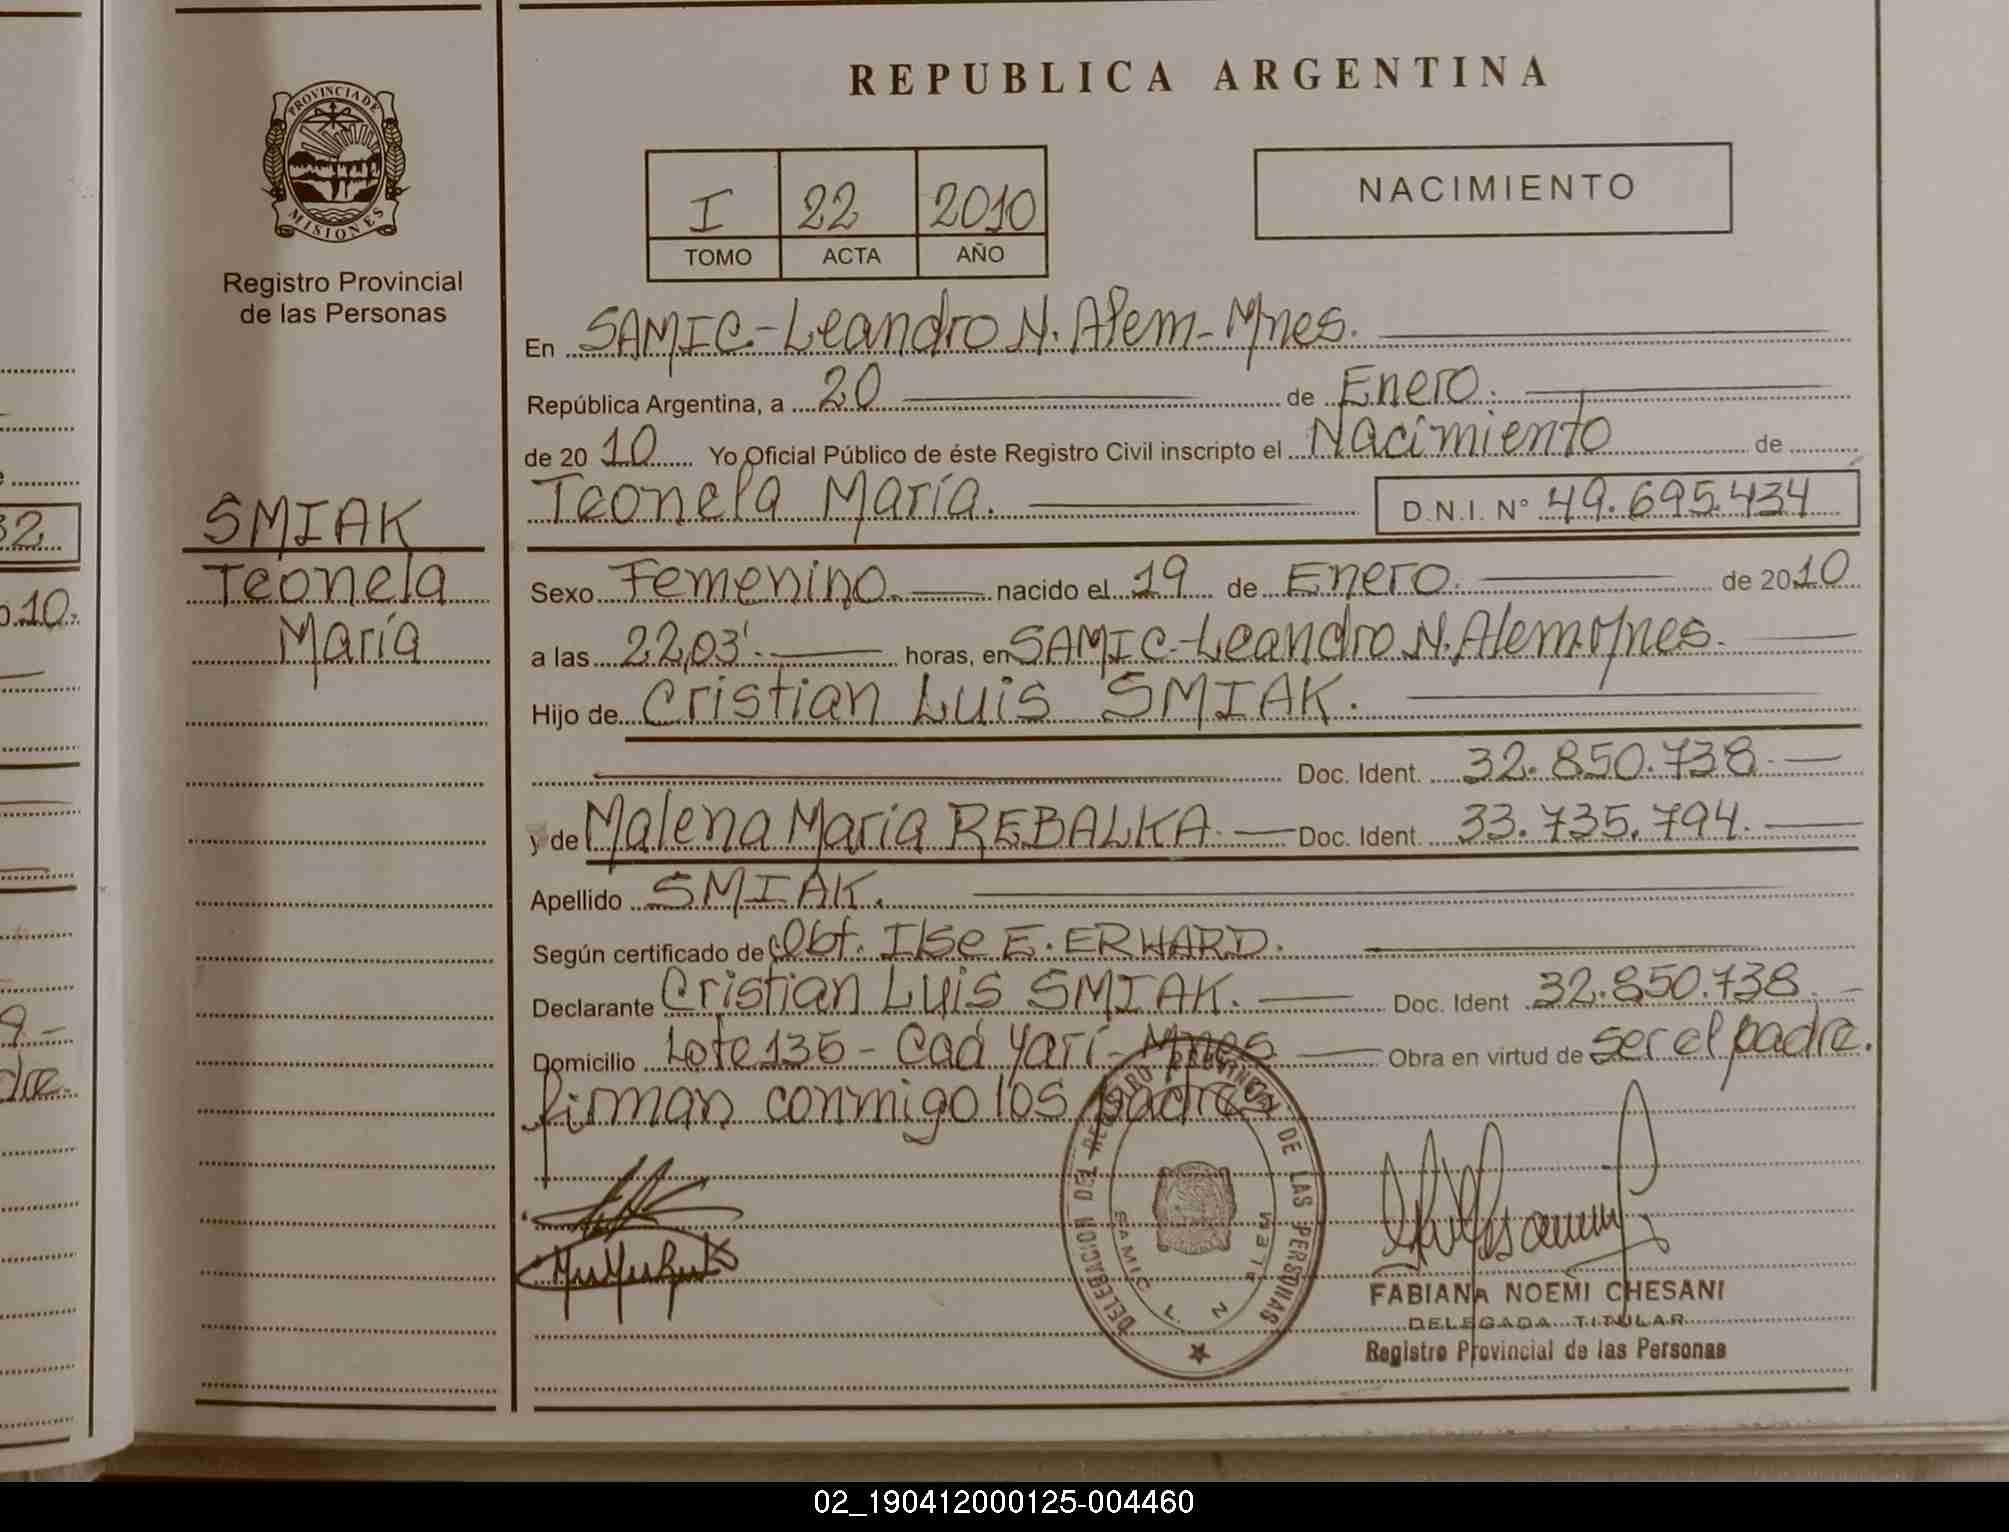 REPUBLICA ARGENTINA
PROVINCIA DE MISIONES
Registro Provincial
de las Personas
I 22 2010
TOMO ACTA AÑO
NACIMIENTO
En SAMIC-Leandro N. Alem-Mnes.
República Argentina, a 20 de Enero.
de 2010 Yo Oficial Público de éste Registro Civil inscripto el Nacimiento de
Teonela María. D.N.I. N° 49.695.434
SMIAK
Teonela
María
Sexo Femenino. nacido el 19 de Enero. de 2010
a las 22,03'. horas, en SAMIC-Leandro N. Alem-Mnes.
Hijo de Cristian Luis SMIAK.
Doc. Ident. 32.850.738.
y de Malena María REBALKA. Doc. Ident. 33.735.794.
Apellido SMIAK.
Según certificado de Obt. Ilse E. ERHARD.
Declarante Cristian Luis SMIAK. Doc. Ident 32.850.738.
Domicilio Lote 135 - Caá Yarí - Mnes Obra en virtud de ser el padre.
firman conmigo los padres
DELEGACION DEL REGISTRO PROVINCIAL DE LAS PERSONAS
SAMIC L. N. ALEM
FABIANA NOEMI CHESANI
DELEGADA TITULAR
Registro Provincial de las Personas
32
10.
9.-
dre.
02_190412000125-004460